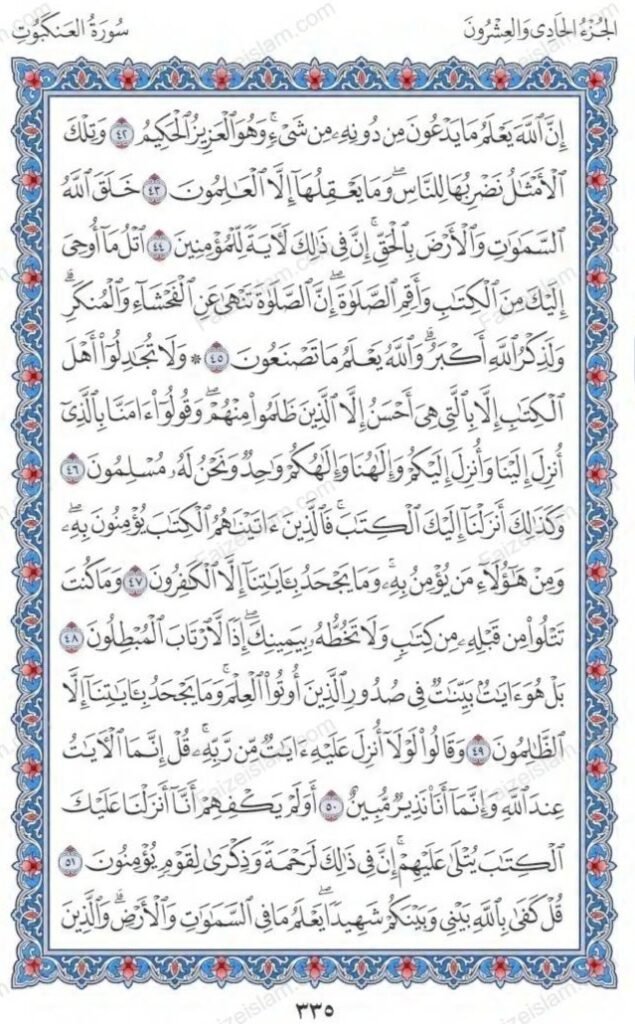 الجُزْءُ الحَادِى وَالعِشْرُونَ
سُورَةُ العَنكَبُوتِ
إِنَّ ٱللَّهَ يَعْلَمُ مَا يَدْعُونَ مِن دُونِهِۦ مِن شَىْءٍۚ وَهُوَ ٱلْعَزِيزُ ٱلْحَكِيمُ ٤٢ وَتِلْكَ
ٱلْأَمْثَٰلُ نَضْرِبُهَا لِلنَّاسِۖ وَمَا يَعْقِلُهَآ إِلَّا ٱلْعَٰلِمُونَ ٤٣ خَلَقَ ٱللَّهُ
ٱلسَّمَٰوَٰتِ وَٱلْأَرْضَ بِٱلْحَقِّۚ إِنَّ فِى ذَٰلِكَ لَءَايَةً لِّلْمُؤْمِنِينَ ٤٤ ٱتْلُ مَآ أُوحِىَ
إِلَيْكَ مِنَ ٱلْكِتَٰبِ وَأَقِمِ ٱلصَّلَوٰةَۖ إِنَّ ٱلصَّلَوٰةَ تَنْهَىٰ عَنِ ٱلْفَحْشَآءِ وَٱلْمُنكَرِۗ
وَلَذِكْرُ ٱللَّهِ أَكْبَرُۗ وَٱللَّهُ يَعْلَمُ مَا تَصْنَعُونَ ٤٥ * وَلَا تُجَٰدِلُوٓا۟ أَهْلَ
ٱلْكِتَٰبِ إِلَّا بِٱلَّتِى هِىَ أَحْسَنُ إِلَّا ٱلَّذِينَ ظَلَمُوا۟ مِنْهُمْۖ وَقُولُوٓا۟ ءَامَنَّا بِٱلَّذِىٓ
أُنزِلَ إِلَيْنَا وَأُنزِلَ إِلَيْكُمْ وَإِلَٰهُنَا وَإِلَٰهُكُمْ وَٰحِدٌ وَنَحْنُ لَهُۥ مُسْلِمُونَ ٤٦
وَكَذَٰلِكَ أَنزَلْنَآ إِلَيْكَ ٱلْكِتَٰبَۚ فَٱلَّذِينَ ءَاتَيْنَٰهُمُ ٱلْكِتَٰبَ يُؤْمِنُونَ بِهِۦۖ
وَمِنْ هَٰٓؤُلَآءِ مَن يُؤْمِنُ بِهِۦۚ وَمَا يَجْحَدُ بِـَٔايَٰتِنَآ إِلَّا ٱلْكَٰفِرُونَ ٤٧ وَمَا كُنتَ
تَتْلُوا۟ مِن قَبْلِهِۦ مِن كِتَٰبٍ وَلَا تَخُطُّهُۥ بِيَمِينِكَۖ إِذًا لَّٱرْتَابَ ٱلْمُبْطِلُونَ ٤٨
بَلْ هُوَ ءَايَٰتٌۢ بَيِّنَٰتٌ فِى صُدُورِ ٱلَّذِينَ أُوتُوا۟ ٱلْعِلْمَۚ وَمَا يَجْحَدُ بِـَٔايَٰتِنَآ إِلَّا
ٱلظَّٰلِمُونَ ٤٩ وَقَالُوا۟ لَوْلَآ أُنزِلَ عَلَيْهِ ءَايَٰتٌ مِّن رَّبِّهِۦۚ قُلْ إِنَّمَا ٱلْءَايَٰتُ
عِندَ ٱللَّهِ وَإِنَّمَآ أَنَا۠ نَذِيرٌ مُّبِينٌ ٥٠ أَوَلَمْ يَكْفِهِمْ أَنَّآ أَنزَلْنَا عَلَيْكَ
ٱلْكِتَٰبَ يُتْلَىٰ عَلَيْهِمْۚ إِنَّ فِى ذَٰلِكَ لَرَحْمَةً وَذِكْرَىٰ لِقَوْمٍ يُؤْمِنُونَ ٥١
قُلْ كَفَىٰ بِٱللَّهِ بَيْنِى وَبَيْنَكُمْ شَهِيدًاۖ يَعْلَمُ مَا فِى ٱلسَّمَٰوَٰتِ وَٱلْأَرْضِۗ وَٱلَّذِينَ
٣٣٥
Faizeislam.com